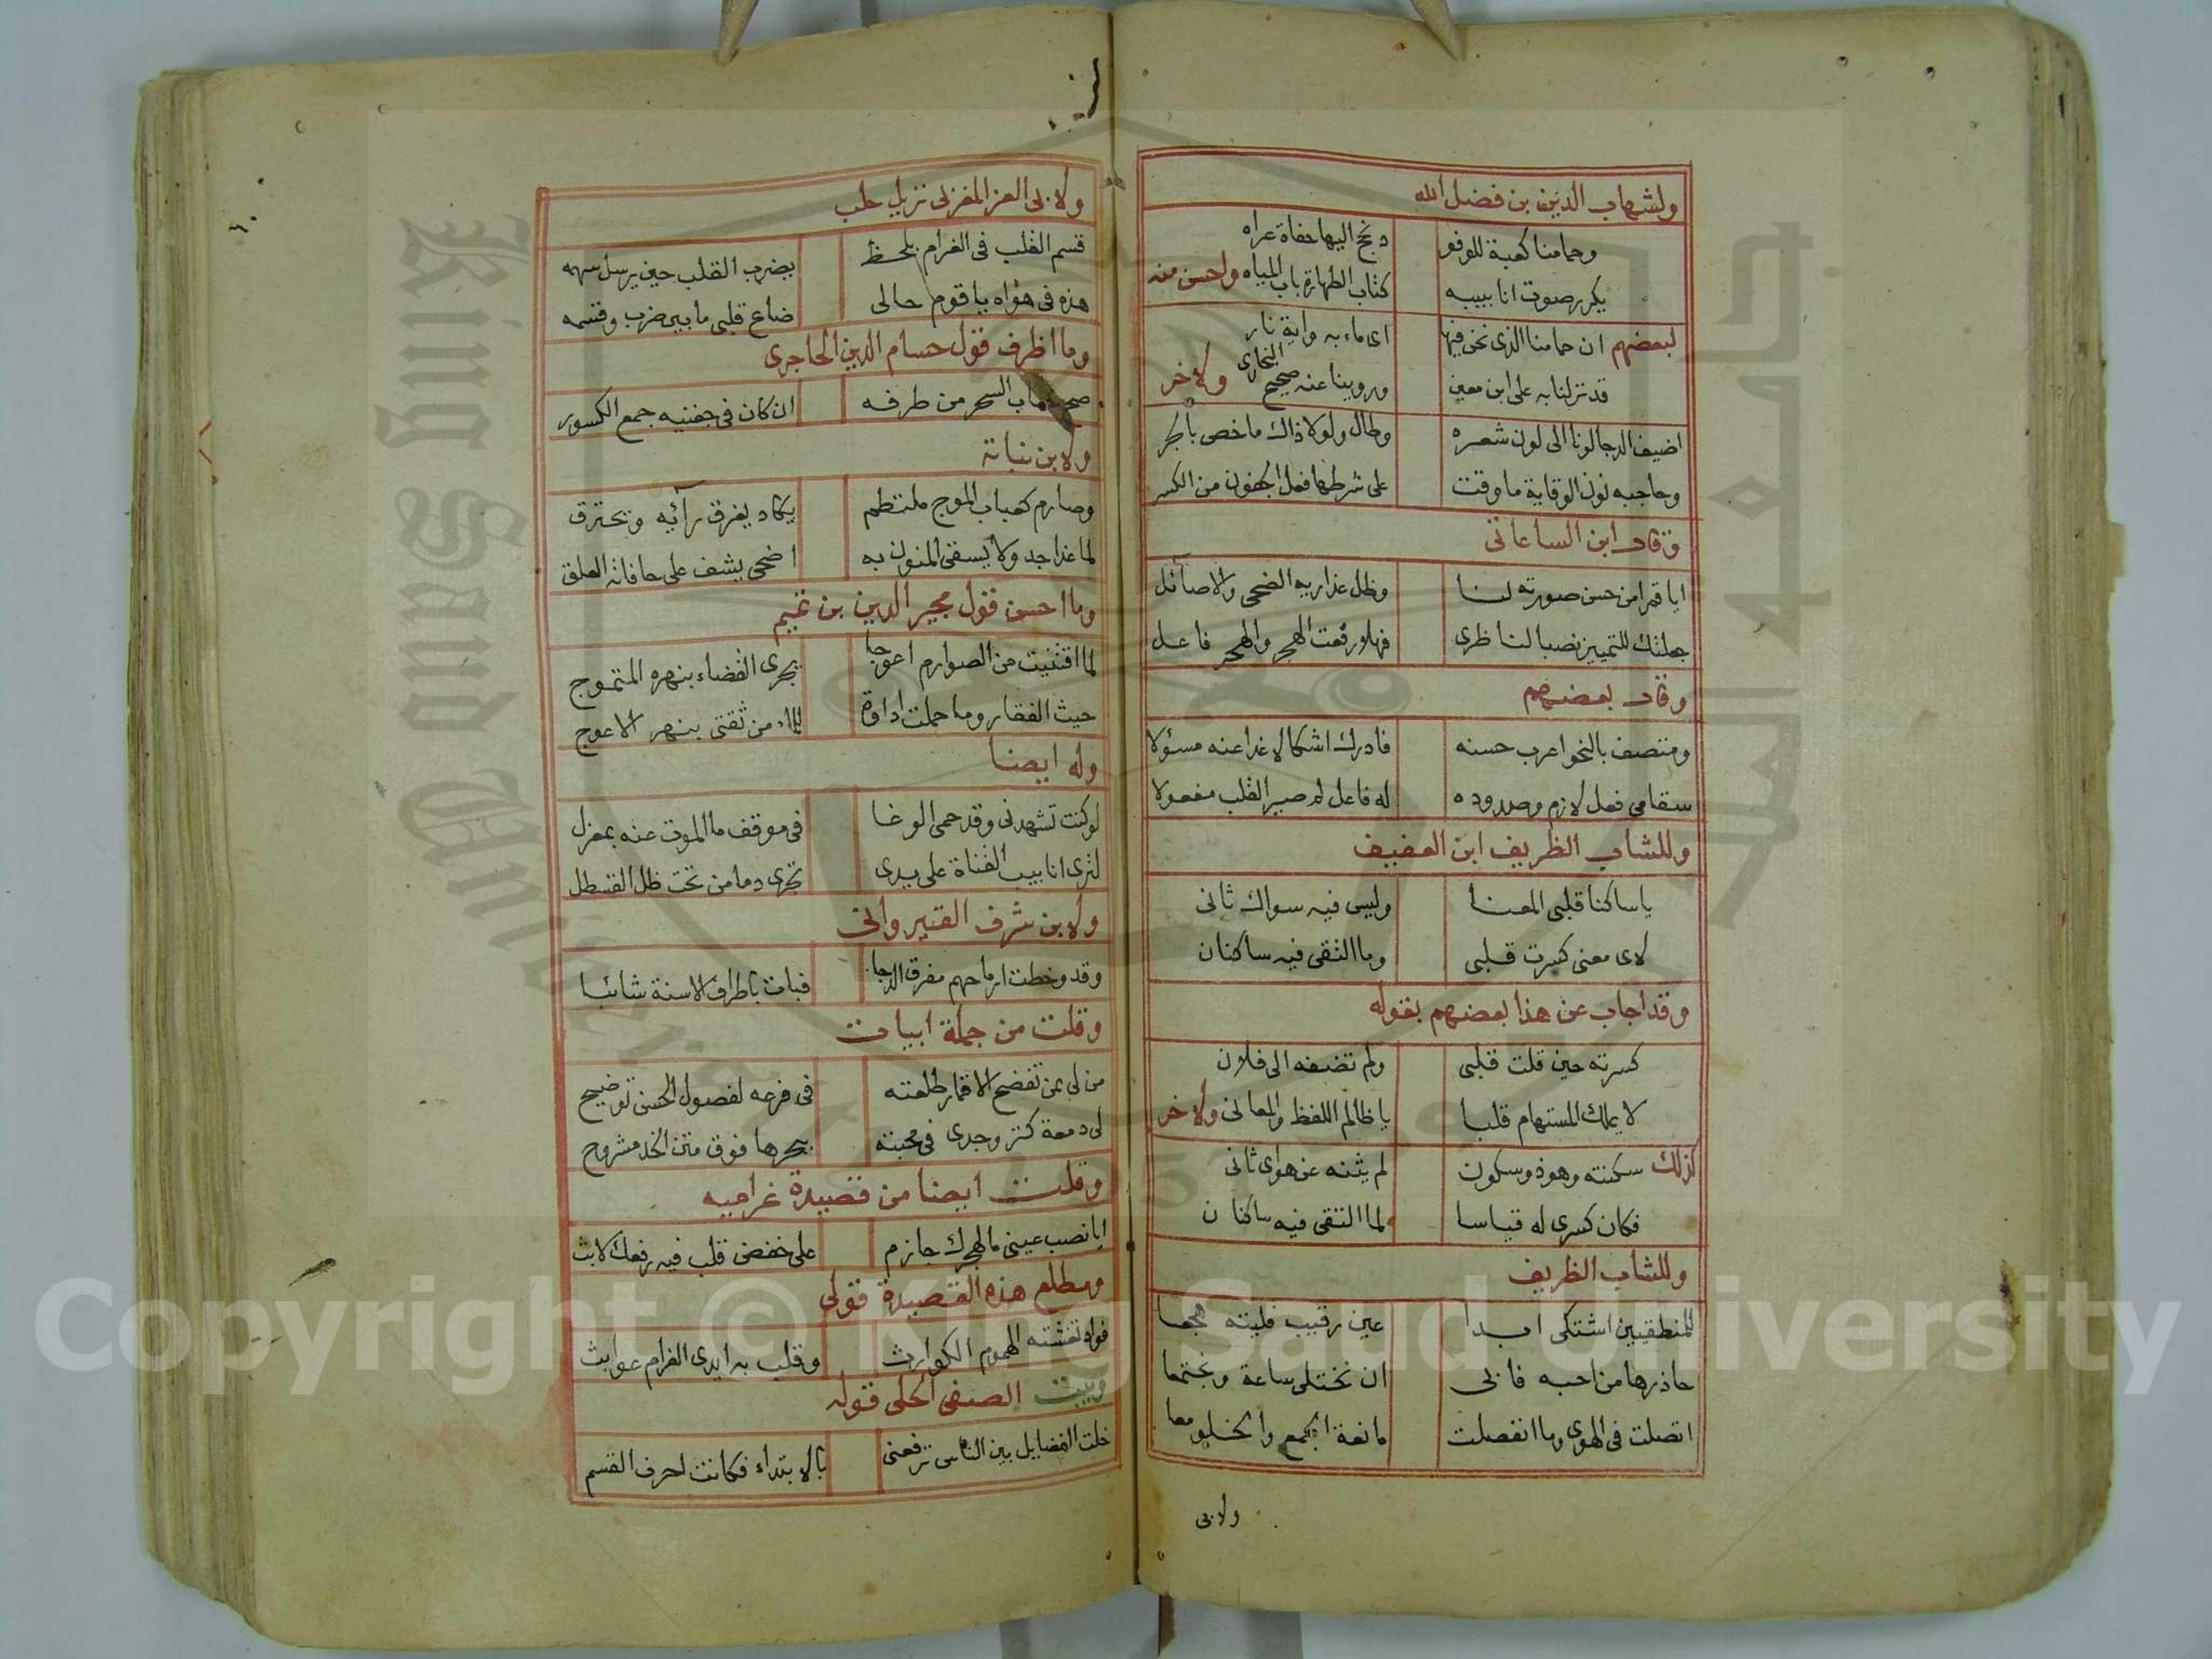 ولشهاب الدين بن فضل الله
وحمامنا كعبة للوفو د نحج اليها حفاة عراه
يكرر صوت انابيبه كتاب الطهارة باب المياه واحسن منه
لبعضهم ان حمامنا الذى نحن فيها اى ماء به واية نار
قد نزلنا به على ابن معين وروينا عنه صحيح النجارى ولاخر
اضيف الدجا لونا الى لون شعره وطال ولولا ذاك ما خص بالجر
وحاجبه نون الوقاية ما وقت على شرطها فعل الجفون من الكسر
وقال ابن الساعاتى
ايا قمرا من حسن صورته لنا وظل عذاريه الضحى والاصائل
جعلتك للتمييز نصبا لناظرى فهلا رفعت الهجر والهجر فاعل
وقال بعضهم
ومتصف بالنحو اعرب حسنه فادرك اشكالا غدا عنه مسؤلا
سقامى فعل لازم وصدوده له فاعل لم صير القلب مفعولا
وللشاب الظريف ابن العفيف
يا ساكنا قلبى المعنا وليس فيه سواك ثانى
لاى معنى كسرت قلبى وما التقى فيه ساكنان
وقد اجاب عن هذا بعضهم بقوله
كسرته حين قلت قلبى ولم تضفه الى فلان
لا يملك المستهام قلبا يا ظالم اللفظ والمعانى ولاخر
كذلك سكنته وهو ذو سكون لم يثنه عن هواى ثانى
فكان كسرى له قياسا لما التقى فيه ساكنان
وللشاب الظريف
للمنطقيين اشتكى ابدا عين رقيب فليته هجعا
حاذرها من احبه فابى ان نختلى ساعة ونجتمعا
اتصلت فى الهوى وما انفصلت مانعة الجمع والخلو معا
ولابى
ولابى العز المغزلى نزيل حلب
قسم القلب فى الغرام بلحظ يضرب القلب حين يرسل سهمه
هذه فى هواه يا قوم حالى ضاع قلبى ما بين ضرب وقسمه
وما اظرف قول حسام الدين الحاجرى
صح حساب السحر من طرفه ان كان فى جفنيه جمع الكسور
ولابن نباتة
وصارم كعباب الموج ملتطم يكاد يغرق رآئيه ويحترق
لما غدا جدولا يسقى المنون به اضحى يشف على حافاته العلق
وما احسن قول مجير الدين بن تميم
لما اقتنيت من الصوارم اعوجا يجرى القضاء بنهره المتموج
حيث القفار وما حملت اداوة للماء من ثقتى بنهر الاعوج
وله ايضا
لو كنت تشهدنى وقد حمى الوغا فى موقف ما الموت عنه بمعزل
لترى انابيب القناة على يدى تجرى دما من تحت ظل القسطل
ولابن شرف القيروانى
وقد وخطت ارماحهم مفرق الدجا فبات باطراف الاسنة شائبا
وقلت من جملة ابيات
من لى بمن تفضح الاقمار طلعته فى فرعه لفصول الحسن توضيح
لى دمعة كثر وجدى فى محبته بحرها فوق متن الخد مشروح
وقلت ايضا من قصيدة غراميه
ايا نصب عينى ما لهجرك جازم على خفض قلب فيه رفعك لابث
ومطلع هذه القصيدة قولى
فواد تغشته الهموم الكوارث وقلب به ايدى الغرام عوابث
وبيت الصفى الحلى قوله
خلت الفضايل بين الناس ترفعنى بالابتداء فكانت احرف القسم
Copyright © King Saud University
King Saud University